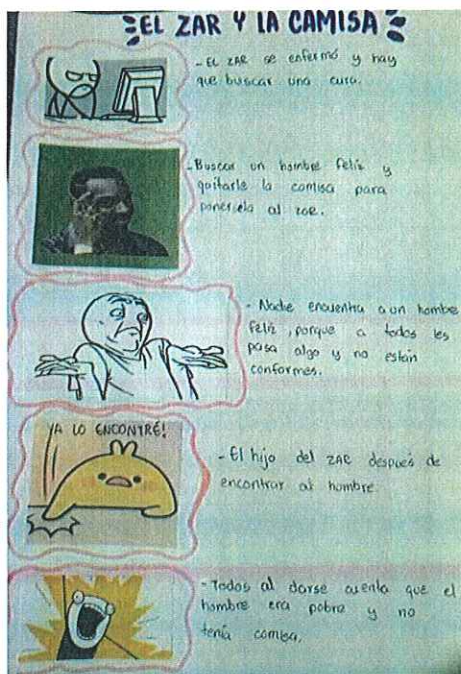 EL ZAR Y LA CAMISA
- EL ZAR se enfermó y hay
que buscar una cura.
- Buscar un hombre feliz y
quitarle la camisa para
ponersela al zar.
- Nadie encuentra a un hombre
feliz, porque a todos les
pasa algo y no están
conformes.
YA LO ENCONTRÉ!
- El hijo del ZAR después de
encontrar al hombre.
- Todos al darse cuenta que el
hombre era pobre y no
tenía camisa.